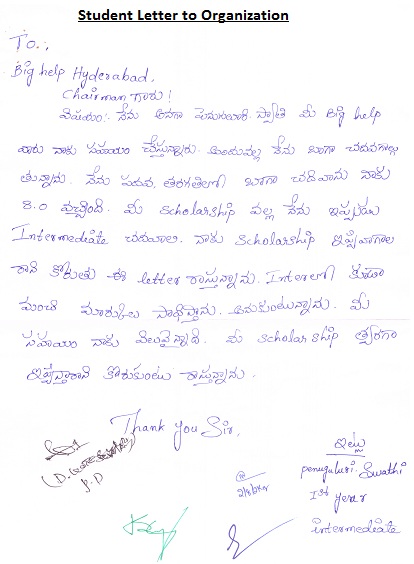 Student Letter to Organization
To.,
Big help Hyderabad.
Chairman గారు!
విషయం:- నేను అనగా పెనుగులూరి. స్వాతి మీ Big help
వారు నాకు సహాయం చేస్తున్నారు. అందువల్ల నేను బాగా చదవగల్గు
తున్నాను. నేను పదవ, తరగతిలో బాగా చదివాను నాకు
8.0 వచ్చింది. మీ scholarship వల్ల నేను ఇప్పుడు
Intermediate చదవాల. నాకు scholarship ఇప్పివ్వాగాల
రాని కోరుతు ఈ letter రాస్తున్నాను. Interలో కూడా
మంచి మార్కులు సాధిస్తాను. అనుకుంటున్నాను. మీ
సహాయం నాకు విలువైన్నది. మీ scholarship త్వరగా
ఇప్పిస్తారాని కోరుకుంటు రాస్తున్నాను.
Thank you Sir,
ఇట్లు
penuguluri. Swathi
Ist year
intermediate
P.D